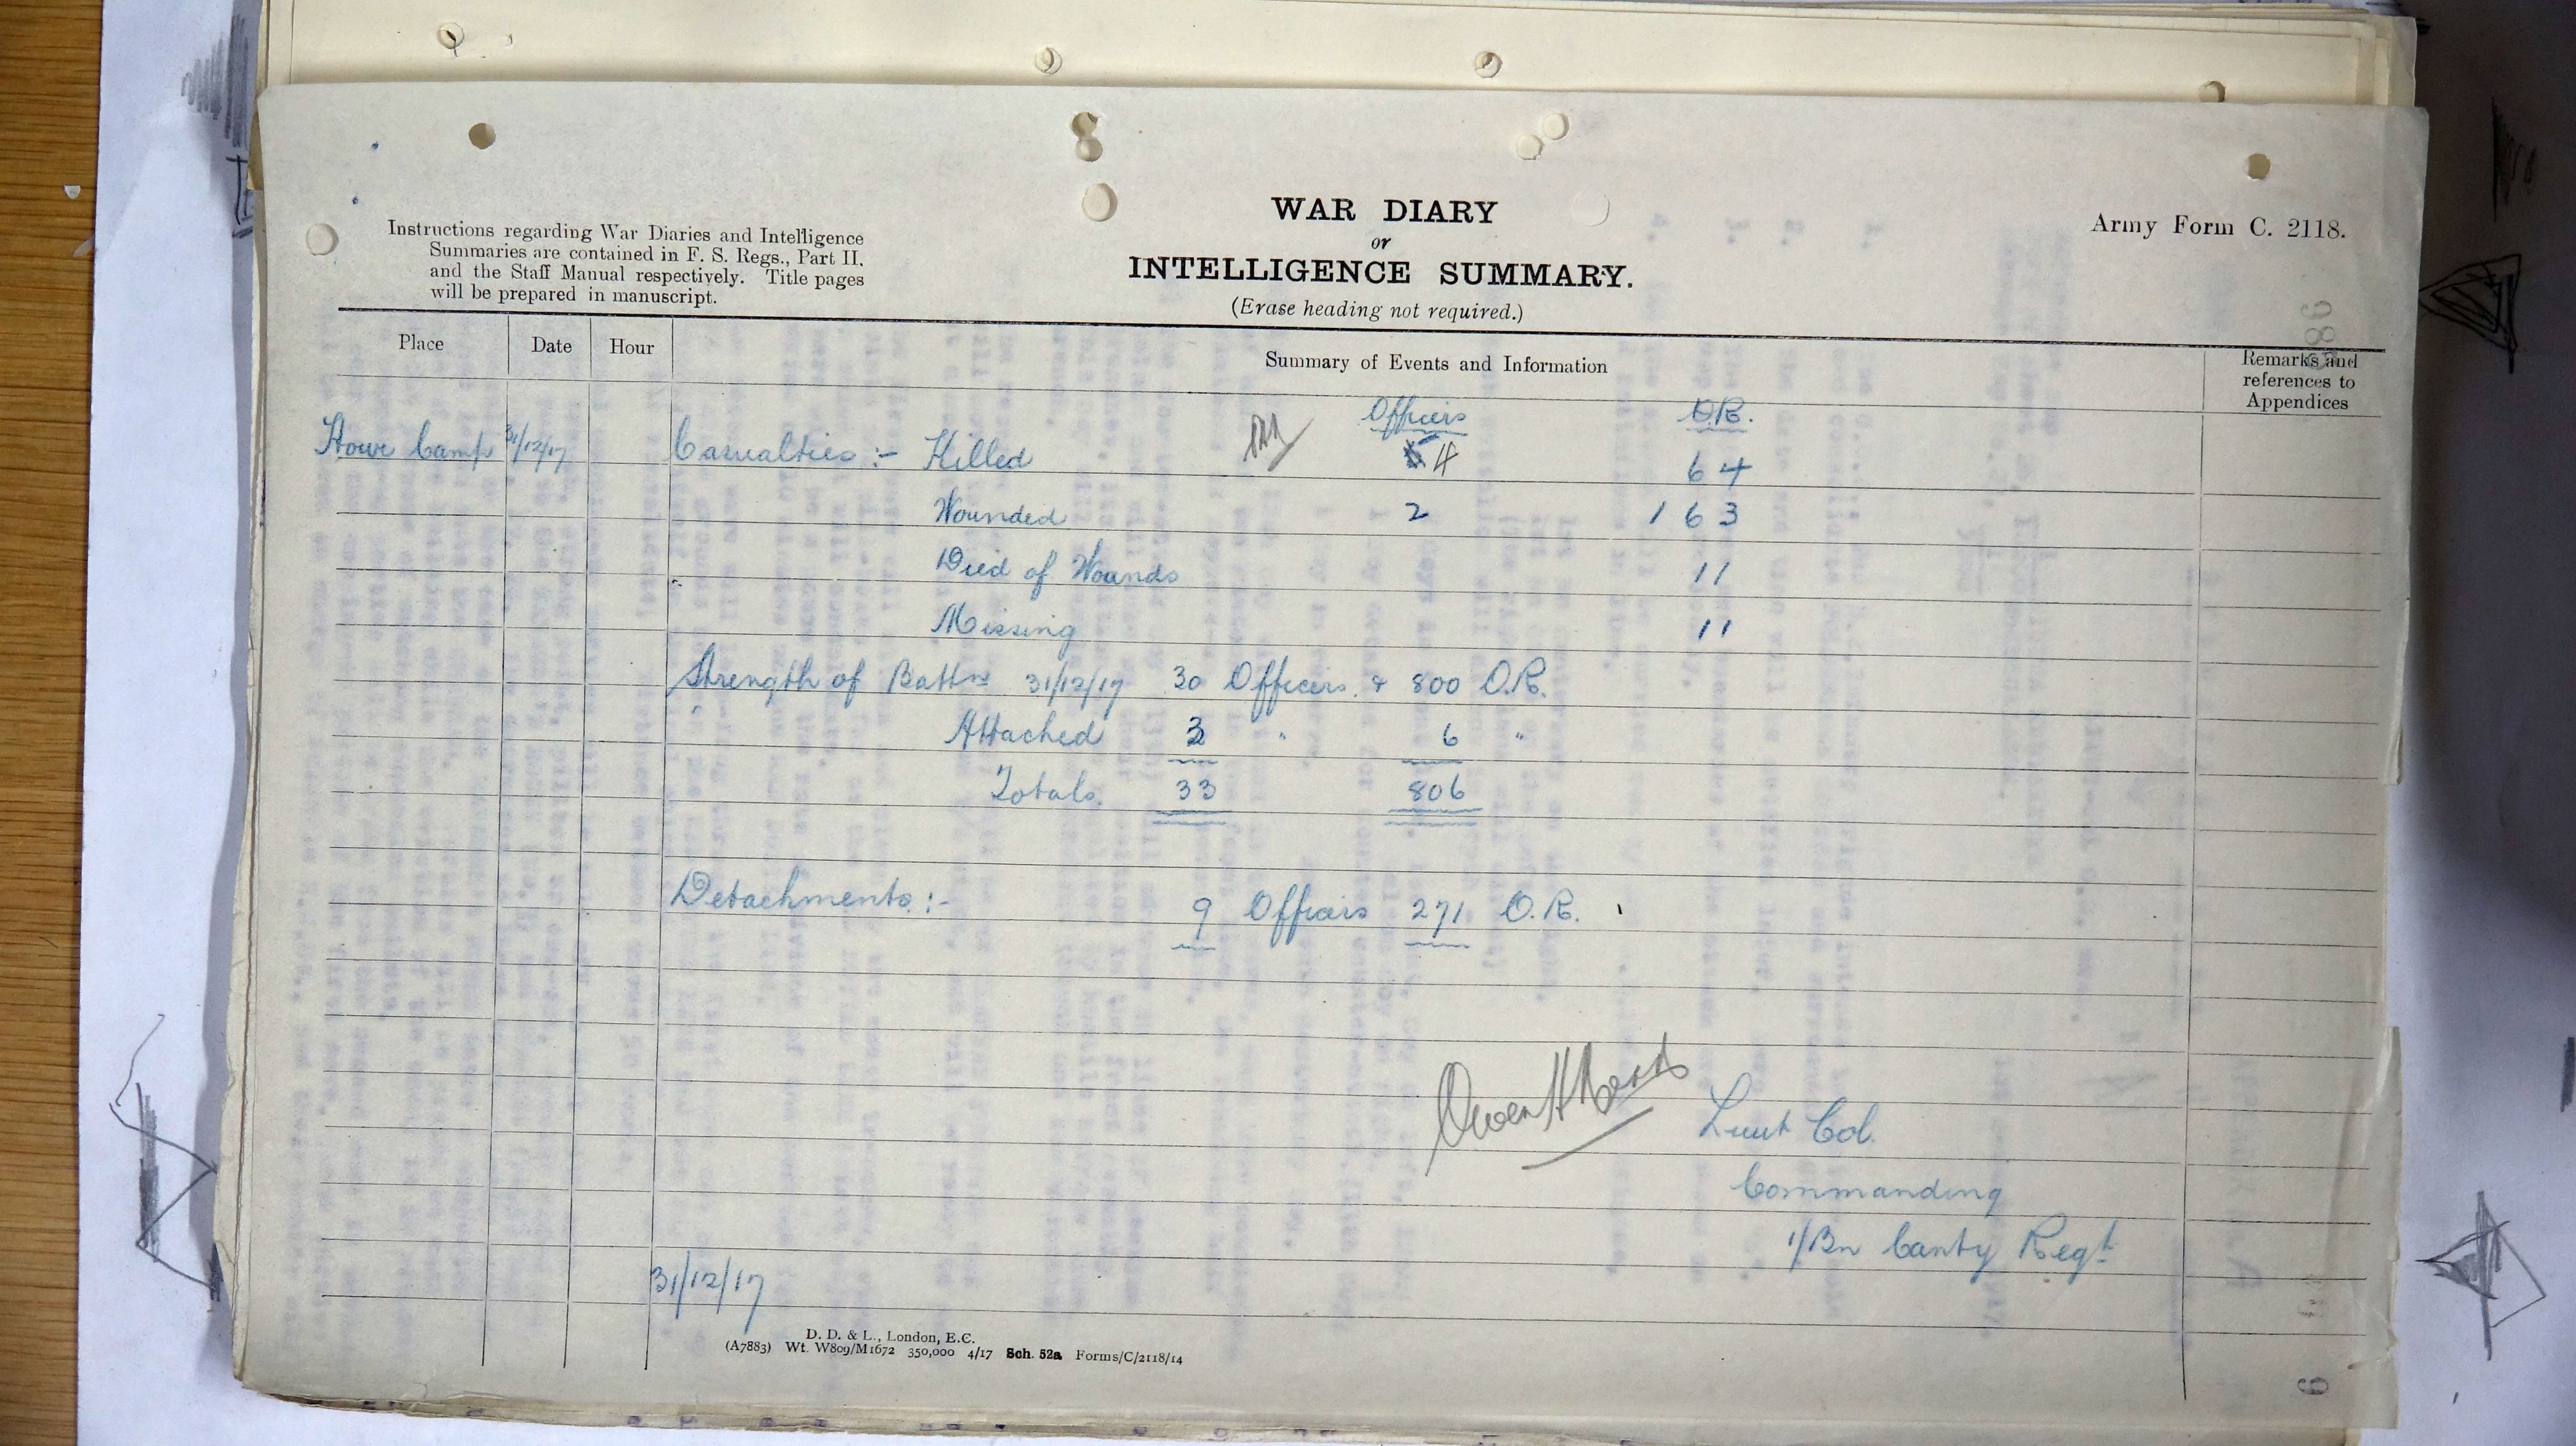 WAR DIARY
or
INTELLIGENCE SUMMARY.
(Erase heading not required.)
Army Form C. 2118.
Instructions regarding War Diaries and Intelligence
Summaries are contained in F. S. Regs., Part II.
and the Staff Manual respectively. Title pages
will be prepared in manuscript.
Place Date Hour Summary of Events and Information Remarks and references to Appendices
Officers O.R.
Howe Camp 31/12/17 Casualties :- Killed 4 64
Wounded 2 163
Died of Wounds 11
Missing 11
Strength of Battn 31/12/17 30 Officers & 800 O.R.
Attached 3 " 6 "
Totals. 33 806
Detachments :- 9 Officers 271 O.R.
Lieut Col.
Commanding
1/Bn Canty Regt
31/12/17
D. D. & L., London, E.C.
(A7883) Wt. W809/M1672 350,000 4/17 Sch. 52a Forms/C/2118/14